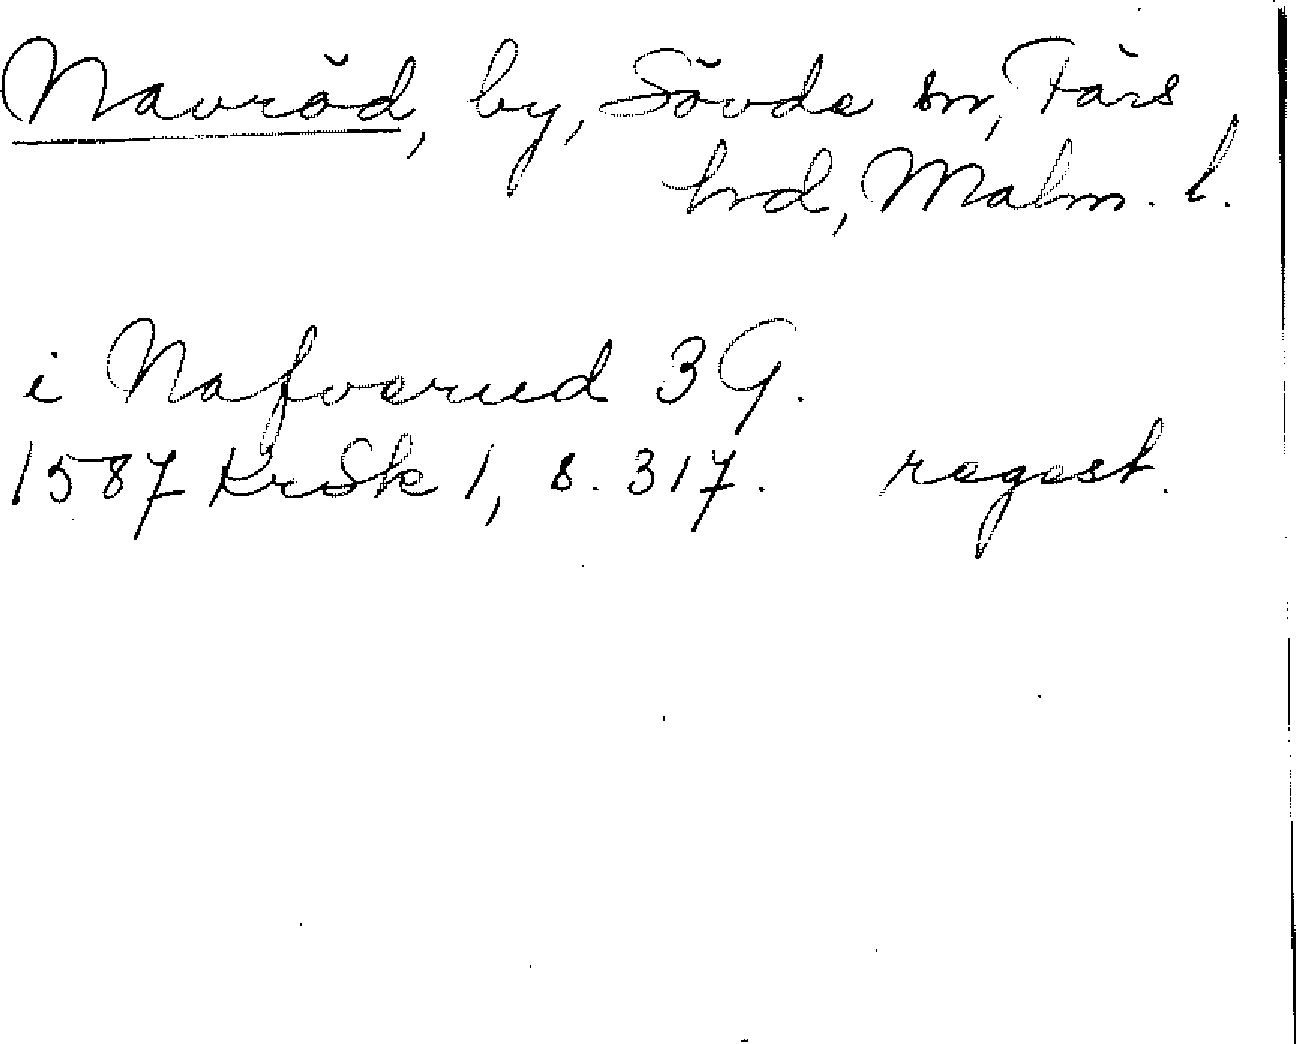 Navröd, by, Sövde sn, Färs
hrd, Malm. l.
i Nafverud 3 G.
1587 KrSk 1, s. 317. regest.